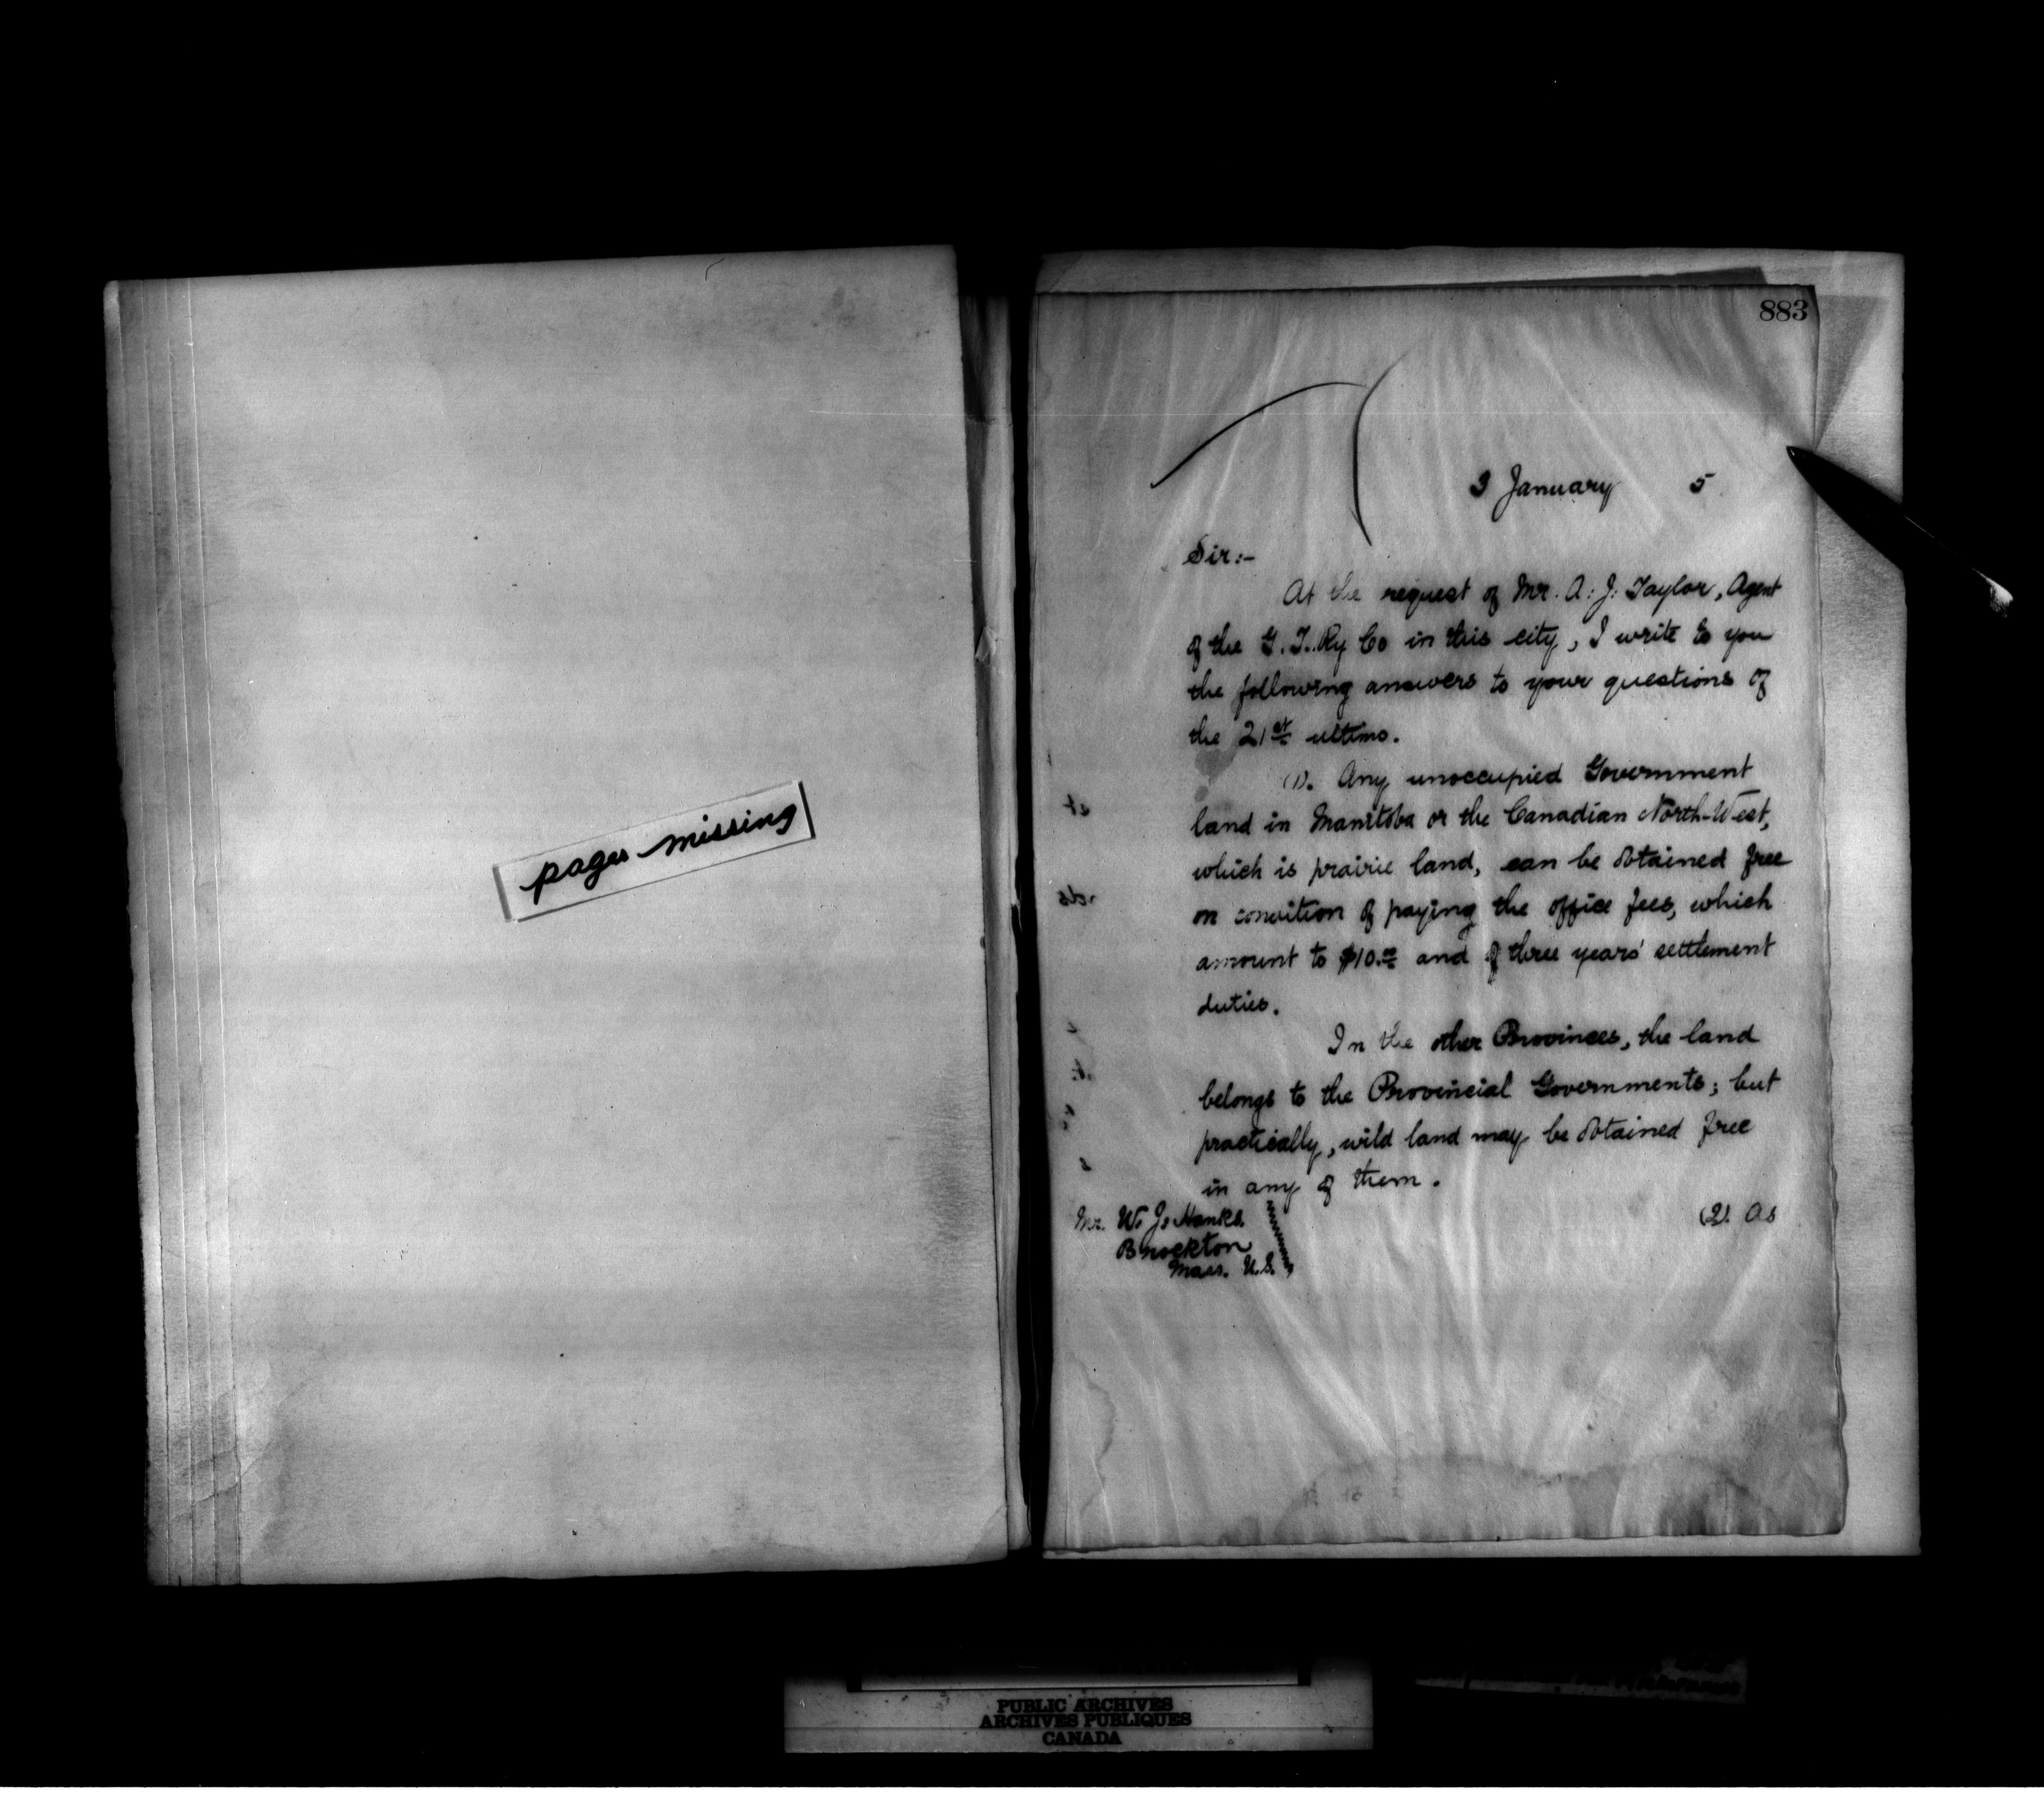 pages missing
883
3 January 5
Sir:-
At the request of Mr. A. J. Taylor, Agent
of the G. T. Ry Co in this city, I write to you
the following answers to your questions of
the 21st ultimo.
(1). Any unoccupied Government
land in Manitoba or the Canadian North-West,
which is prairie land, can be obtained free
on condition of paying the office fees, which
amount to $10.00 and of three years' settlement
duties.
In the other Provinces, the land
belongs to the Provincial Governments; but
practically, wild land may be obtained free
in any of them.
Mr. W. J. Hanks
Brockton
Mass. U.S.
(2). As
PUBLIC ARCHIVES
ARCHIVES PUBLIQUES
CANADA